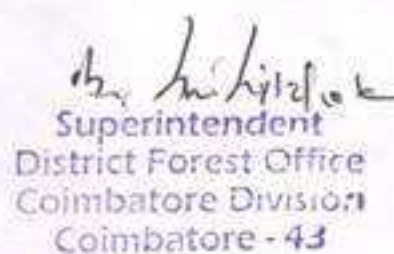 Superintendent
District Forest Office
Coimbatore Division
Coimbatore - 43